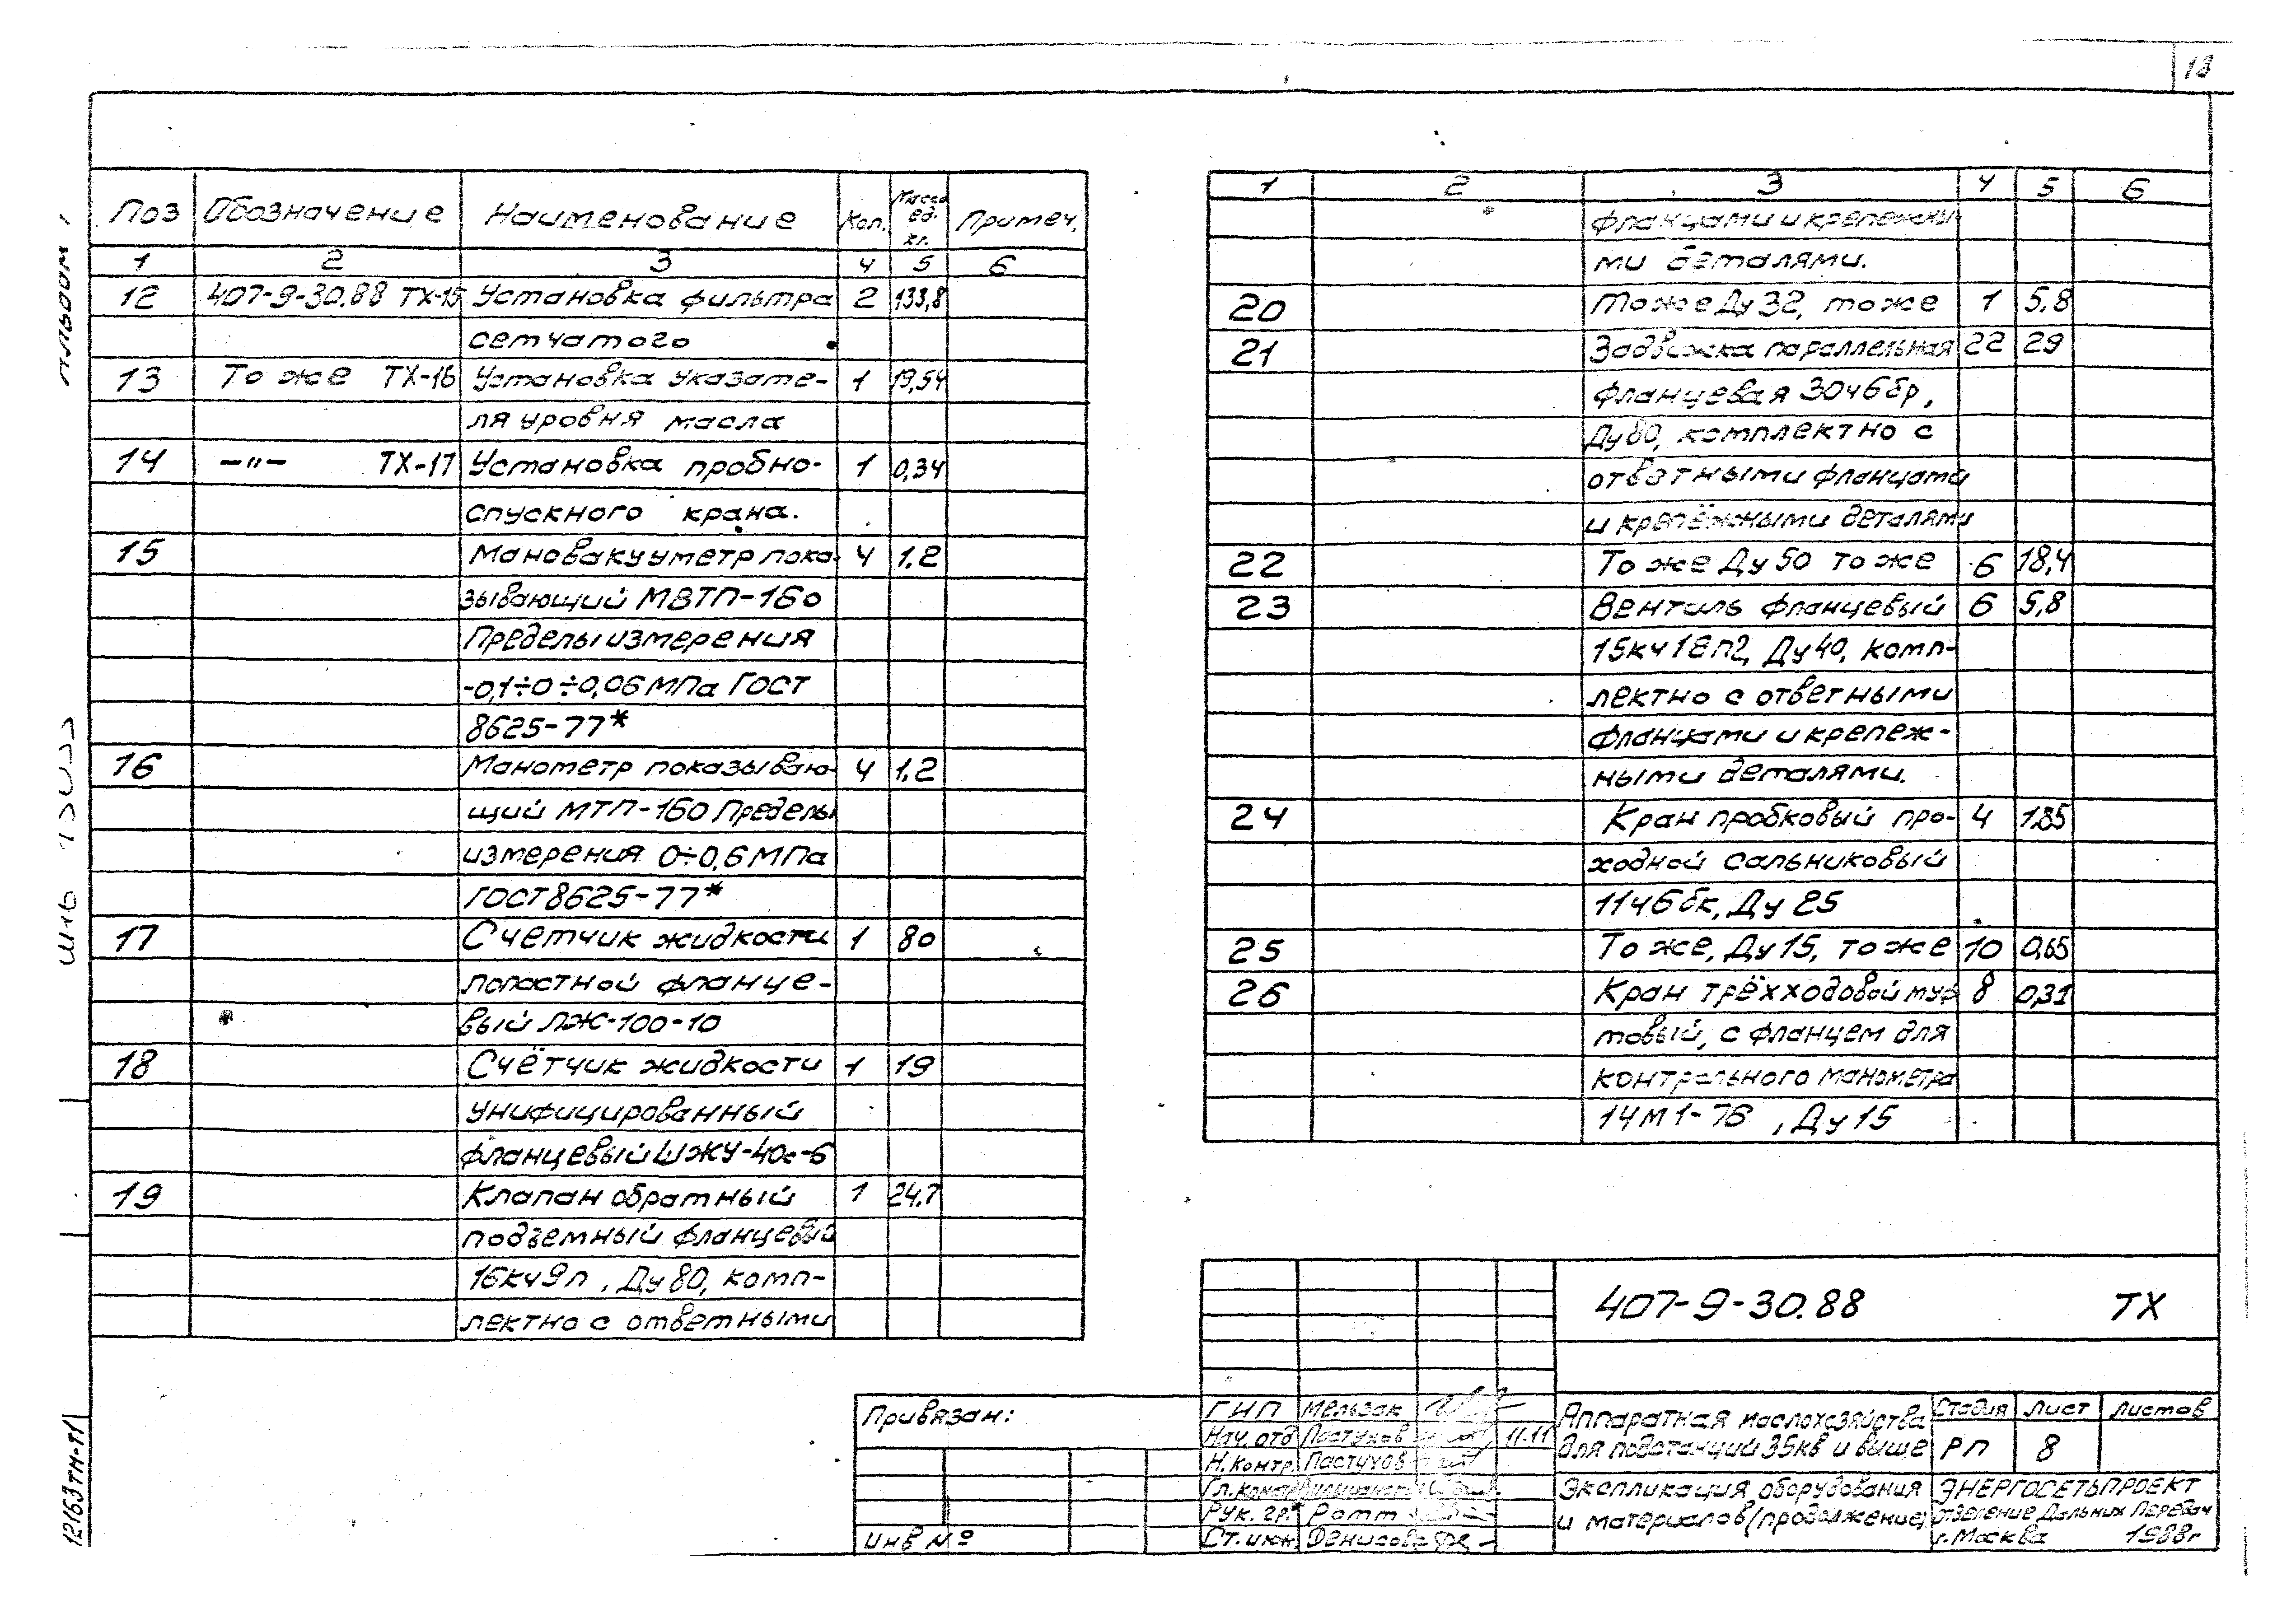 18
Альбом 1
Поз Обозначение Наименование Кол. Масса ед. кг. Примеч.
1 2 3 4 5 6
12 407-9-30.88 ТХ-15 Установка фильтра 2 133,8
сетчатого
13 То же ТХ-16 Установка указате- 1 19,54
ля уровня масла
14 —"— ТХ-17 Установка пробно- 1 0,34
спускного крана.
15 Мановакууметр пока- 4 1.2
зывающий МВТП-160
Пределы измерения
-0,1÷0÷0,06 МПа ГОСТ
8625-77*
16 Манометр показываю- 4 1.2
щий МТП-160 Пределы
измерения 0÷0,6 МПа
ГОСТ 8625-77*
17 Счетчик жидкости 1 80
лопастной фланце-
вый ЛЖ-100-10
18 Счётчик жидкости 1 19
унифицированный
фланцевый ШЖУ-40с-6
19 Клапан обратный 1 24.7
подъемный фланцевый
16кч9п, Ду 80, комп-
лектно с ответными
1 2 3 4 5 6
фланцами и крепежны-
ми деталями.
20 То же Ду 32, то же 1 5.8
21 Задвижка параллельная 22 29
фланцевая 30ч6бр,
Ду 80, комплектно с
ответными фланцами
и крепёжными деталями
22 То же Ду 50 то же 6 18,4
23 Вентиль фланцевый 6 5,8
15кч18п2, Ду 40, комп-
лектно с ответными
фланцами и крепеж-
ными деталями.
24 Кран пробковый про- 4 1.85
ходной сальниковый
11ч6бк, Ду 25
25 То же, Ду 15, то же 10 0,65
26 Кран трёхходовой муф 8 0,31
товый, с фланцем для
контрольного манометра
14М1-76 , Ду 15
407-9-30.88 ТХ
Привязан:
Инв №
ГИП Мельзак
Нач. отд Пастухов 11.11
Н. контр. Пастухов
Гл. конст
Рук. гр. Ротт
Ст. инж. Денисова
Аппаратная маслохозяйства
для подстанций 35кв и выше
Стадия Лист Листов
РП 8
Экспликация оборудования
и материалов (продолжение)
ЭНЕРГОСЕТЬПРОЕКТ
отделение Дальних Передач
г. Москва 1988г
12163тм-т1